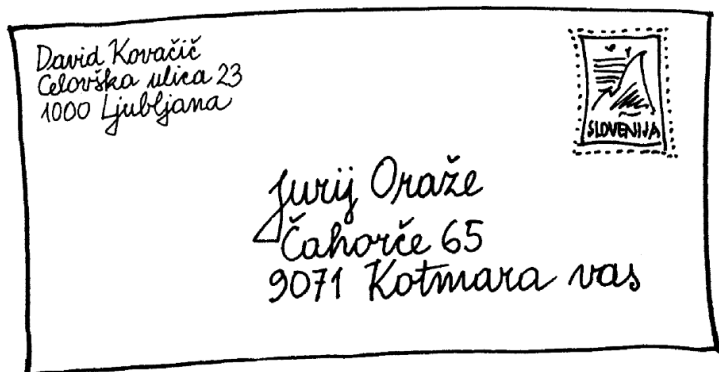 David Kovačič
Celovška ulica 23
1000 Ljubljana
SLOVENIJA
Jurij Oraže
Čahorče 65
9071 Kotmara vas